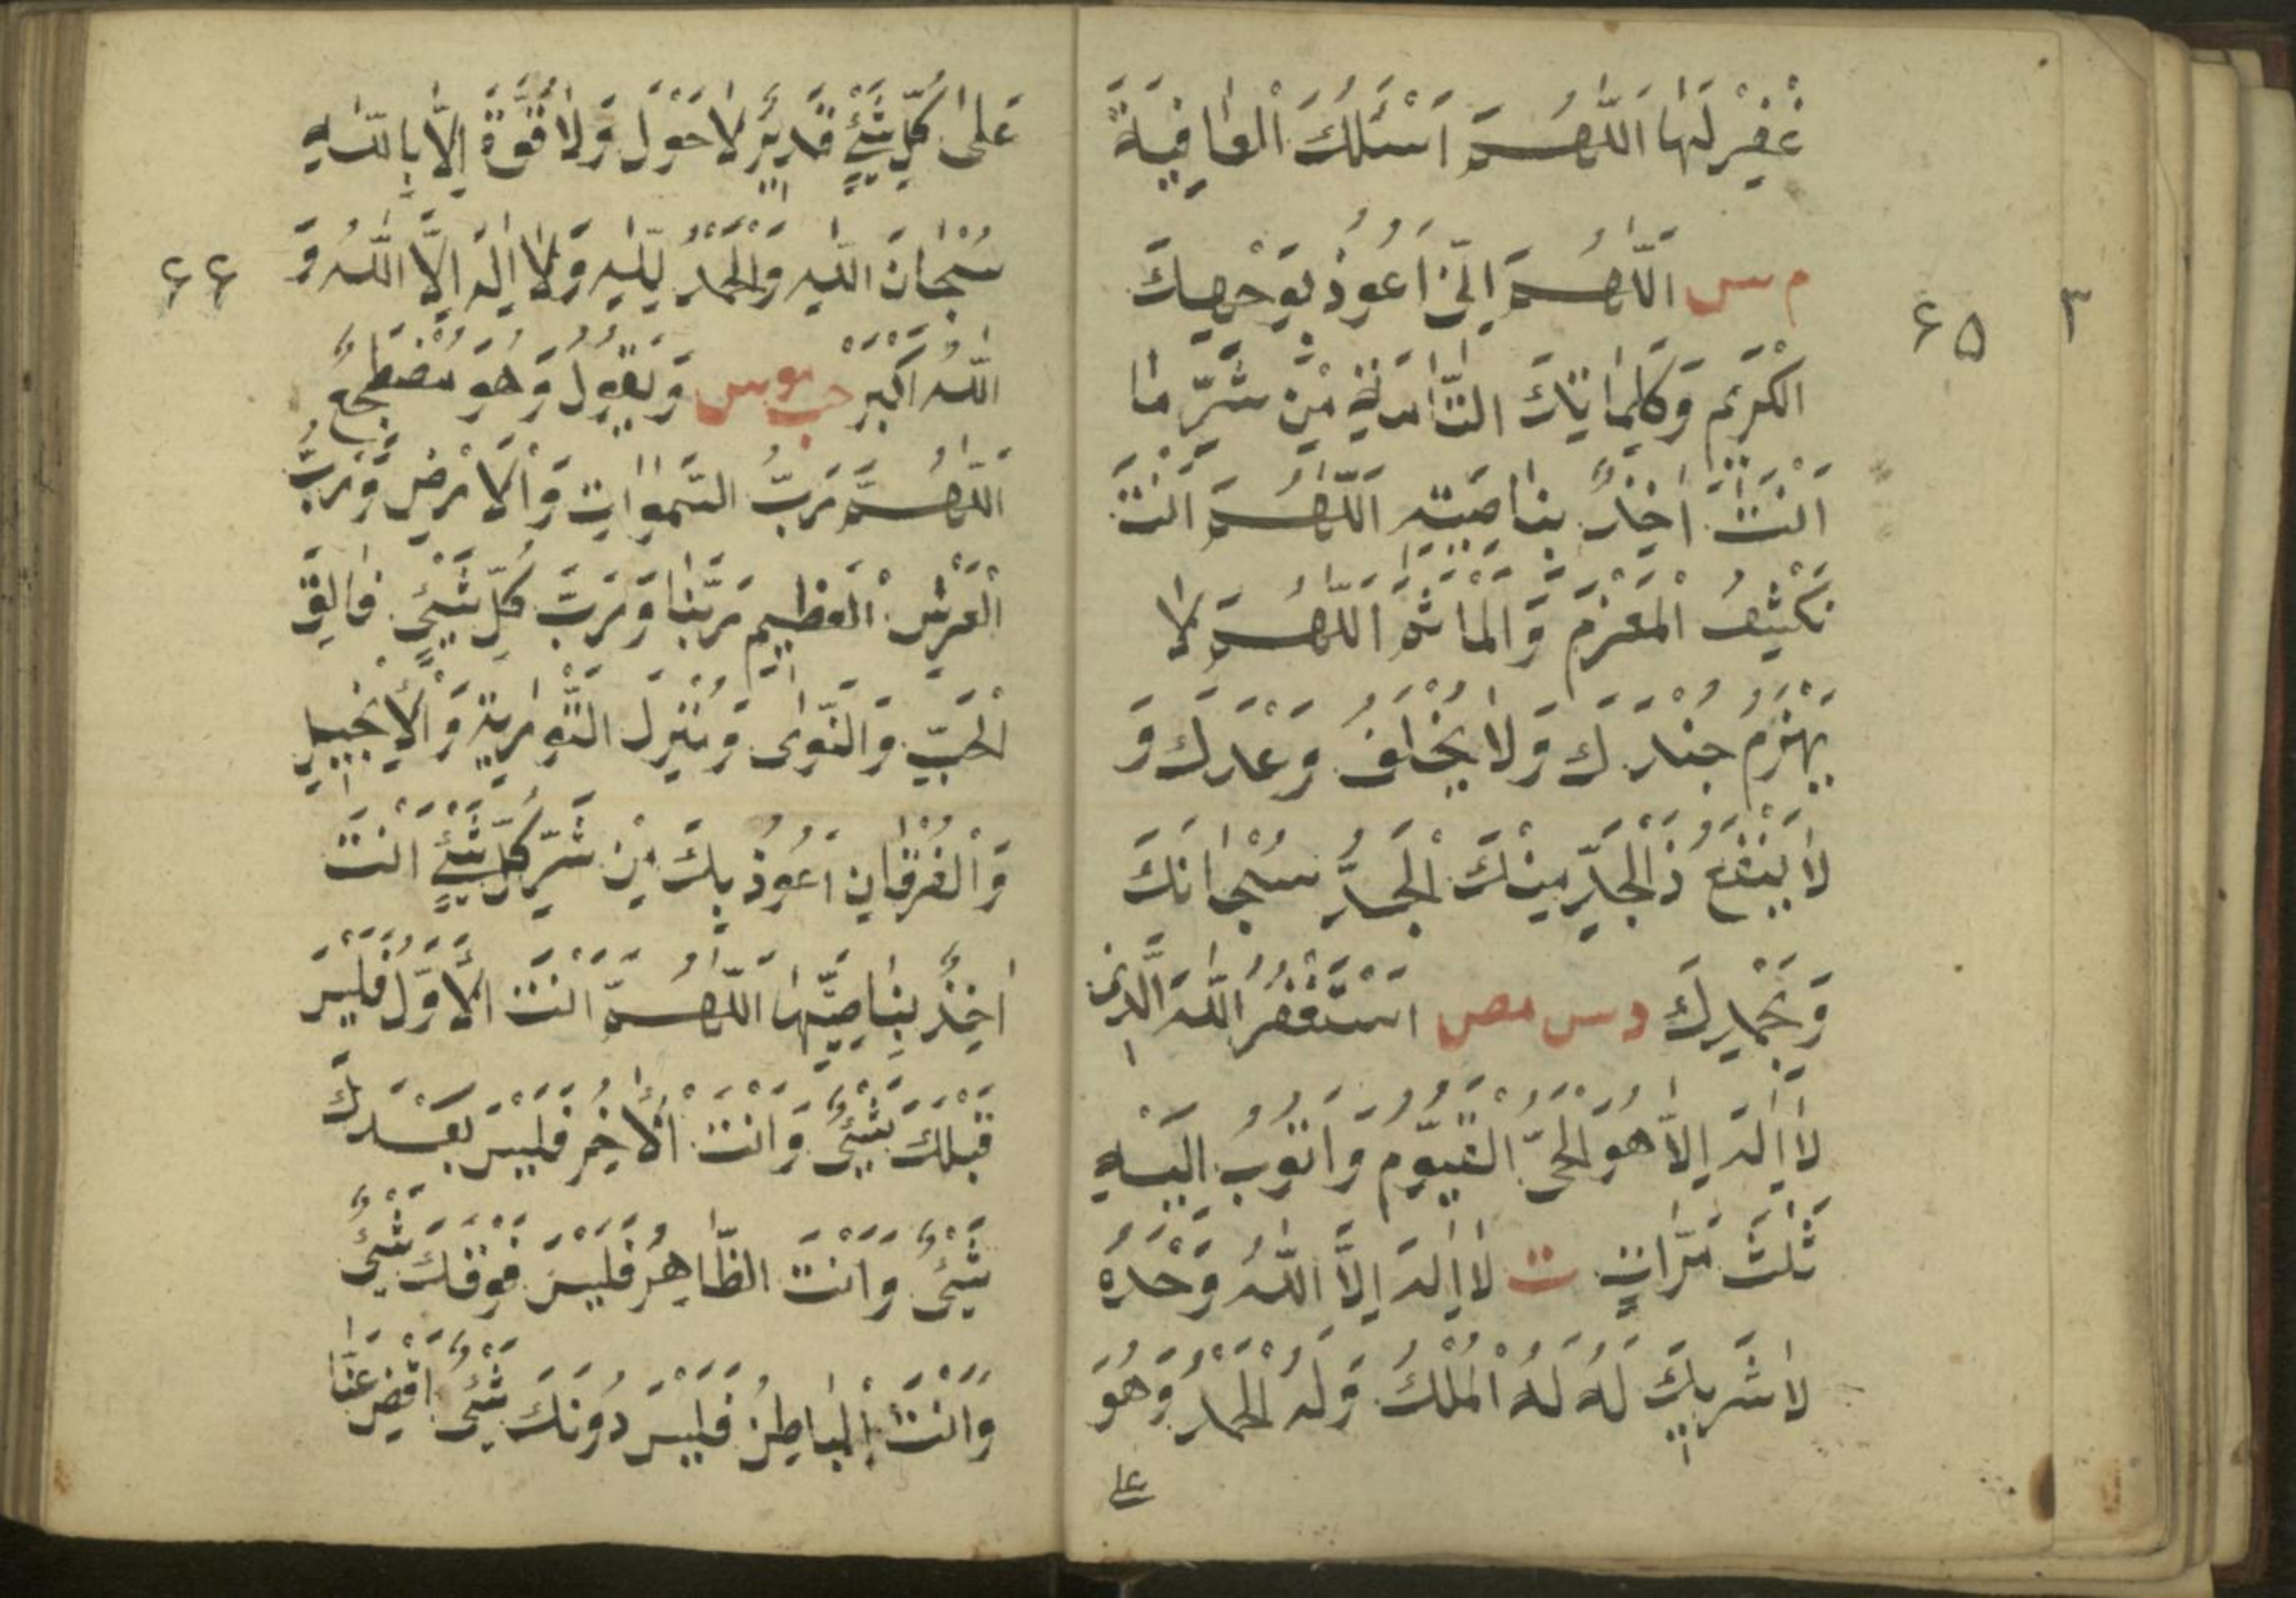 غْفِرْ لَهَا اَللّٰهُمَّ اَسْئَلُكَ الْعَافِيَةَ
م س اَللّٰهُمَّ اِنِّيْ اَعُوْذُ بِوَجْهِكَ
الْكَرِيْمِ وَكَلِمَاتِكَ التَّامَّةِ مِنْ شَرِّ مَا
اَنْتَ اٰخِذٌ بِنَاصِيَتِهِ اَللّٰهُمَّ اَنْتَ
تَكْشِفُ الْمَغْرَمَ وَالْمَاْثَمَ اَللّٰهُمَّ لَا
يُهْزَمُ جُنْدُكَ وَلَا يُخْلَفُ وَعْدُكَ وَ
لَا يَنْفَعُ ذَالْجَدِّ مِنْكَ الْجَدُّ سُبْحَانَكَ
وَبِحَمْدِكَ د س مص اَسْتَغْفِرُ اللّٰهَ الَّذِيْ
لَا اِلٰهَ اِلَّا هُوَ الْحَيُّ الْقَيُّوْمُ وَاَتُوْبُ اِلَيْهِ
ثَلٰثَ مَرَّاتٍ ت لَا اِلٰهَ اِلَّا اللّٰهُ وَحْدَهُ
لَا شَرِيْكَ لَهُ لَهُ الْمُلْكُ وَلَهُ الْحَمْدُ وَهُوَ
على
٣
۶۵
عَلٰى كُلِّ شَيْئٍ قَدِيْرٌ لَا حَوْلَ وَلَا قُوَّةَ اِلَّا بِاللّٰهِ
سُبْحَانَ اللّٰهِ وَالْحَمْدُ لِلّٰهِ وَلَا اِلٰهَ اِلَّا اللّٰهُ وَ
اللّٰهُ اَكْبَرْ حب موس وَيَقُوْلُ وَهُوَ مُضْطَجِعٌ
اَللّٰهُمَّ رَبَّ السَّمٰوَاتِ وَالْاَرْضِ وَرَبَّ
الْعَرْشِ الْعَظِيْمِ رَبَّنَا وَرَبَّ كُلِّ شَيْئٍ فَالِقَ
الْحَبِّ وَالنَّوٰى وَمُنْزِلَ التَّوْرٰيةِ وَالْاِنْجِيْلِ
وَالْفُرْقَانِ اَعُوْذُ بِكَ مِنْ شَرِّ كُلِّ شَيْئٍ اَنْتَ
اٰخِذٌ بِنَاصِيَتِهَا اَللّٰهُمَّ اَنْتَ الْاَوَّلُ فَلَيْسَ
قَبْلَكَ شَيْئٌ وَاَنْتَ الْاٰخِرُ فَلَيْسَ بَعْدَكَ
شَيْئٌ وَاَنْتَ الظَّاهِرُ فَلَيْسَ فَوْقَكَ شَيْئٌ
وَاَنْتَ الْبَاطِنُ فَلَيْسَ دُوْنَكَ شَيْئٌ اِقْضِ عَنَّا
۶۶